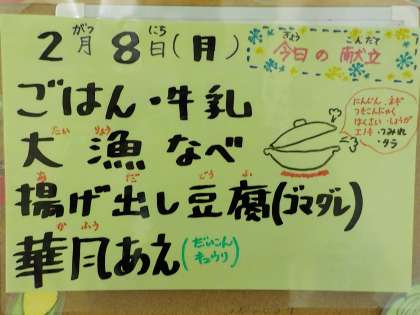 2月8日(月)
がつ にち
きょう こんだて
今日の献立
ごはん・牛乳
たい りょう
大漁なべ
にんじん、ネギ
つきこんにゃく
はくさい・しょうが
エノキ・つみれ
・タラ
あ だ どう ふ
揚げ出し豆腐(ゴマダレ)
か ふう
華風あえ(だいこん
キュウリ)